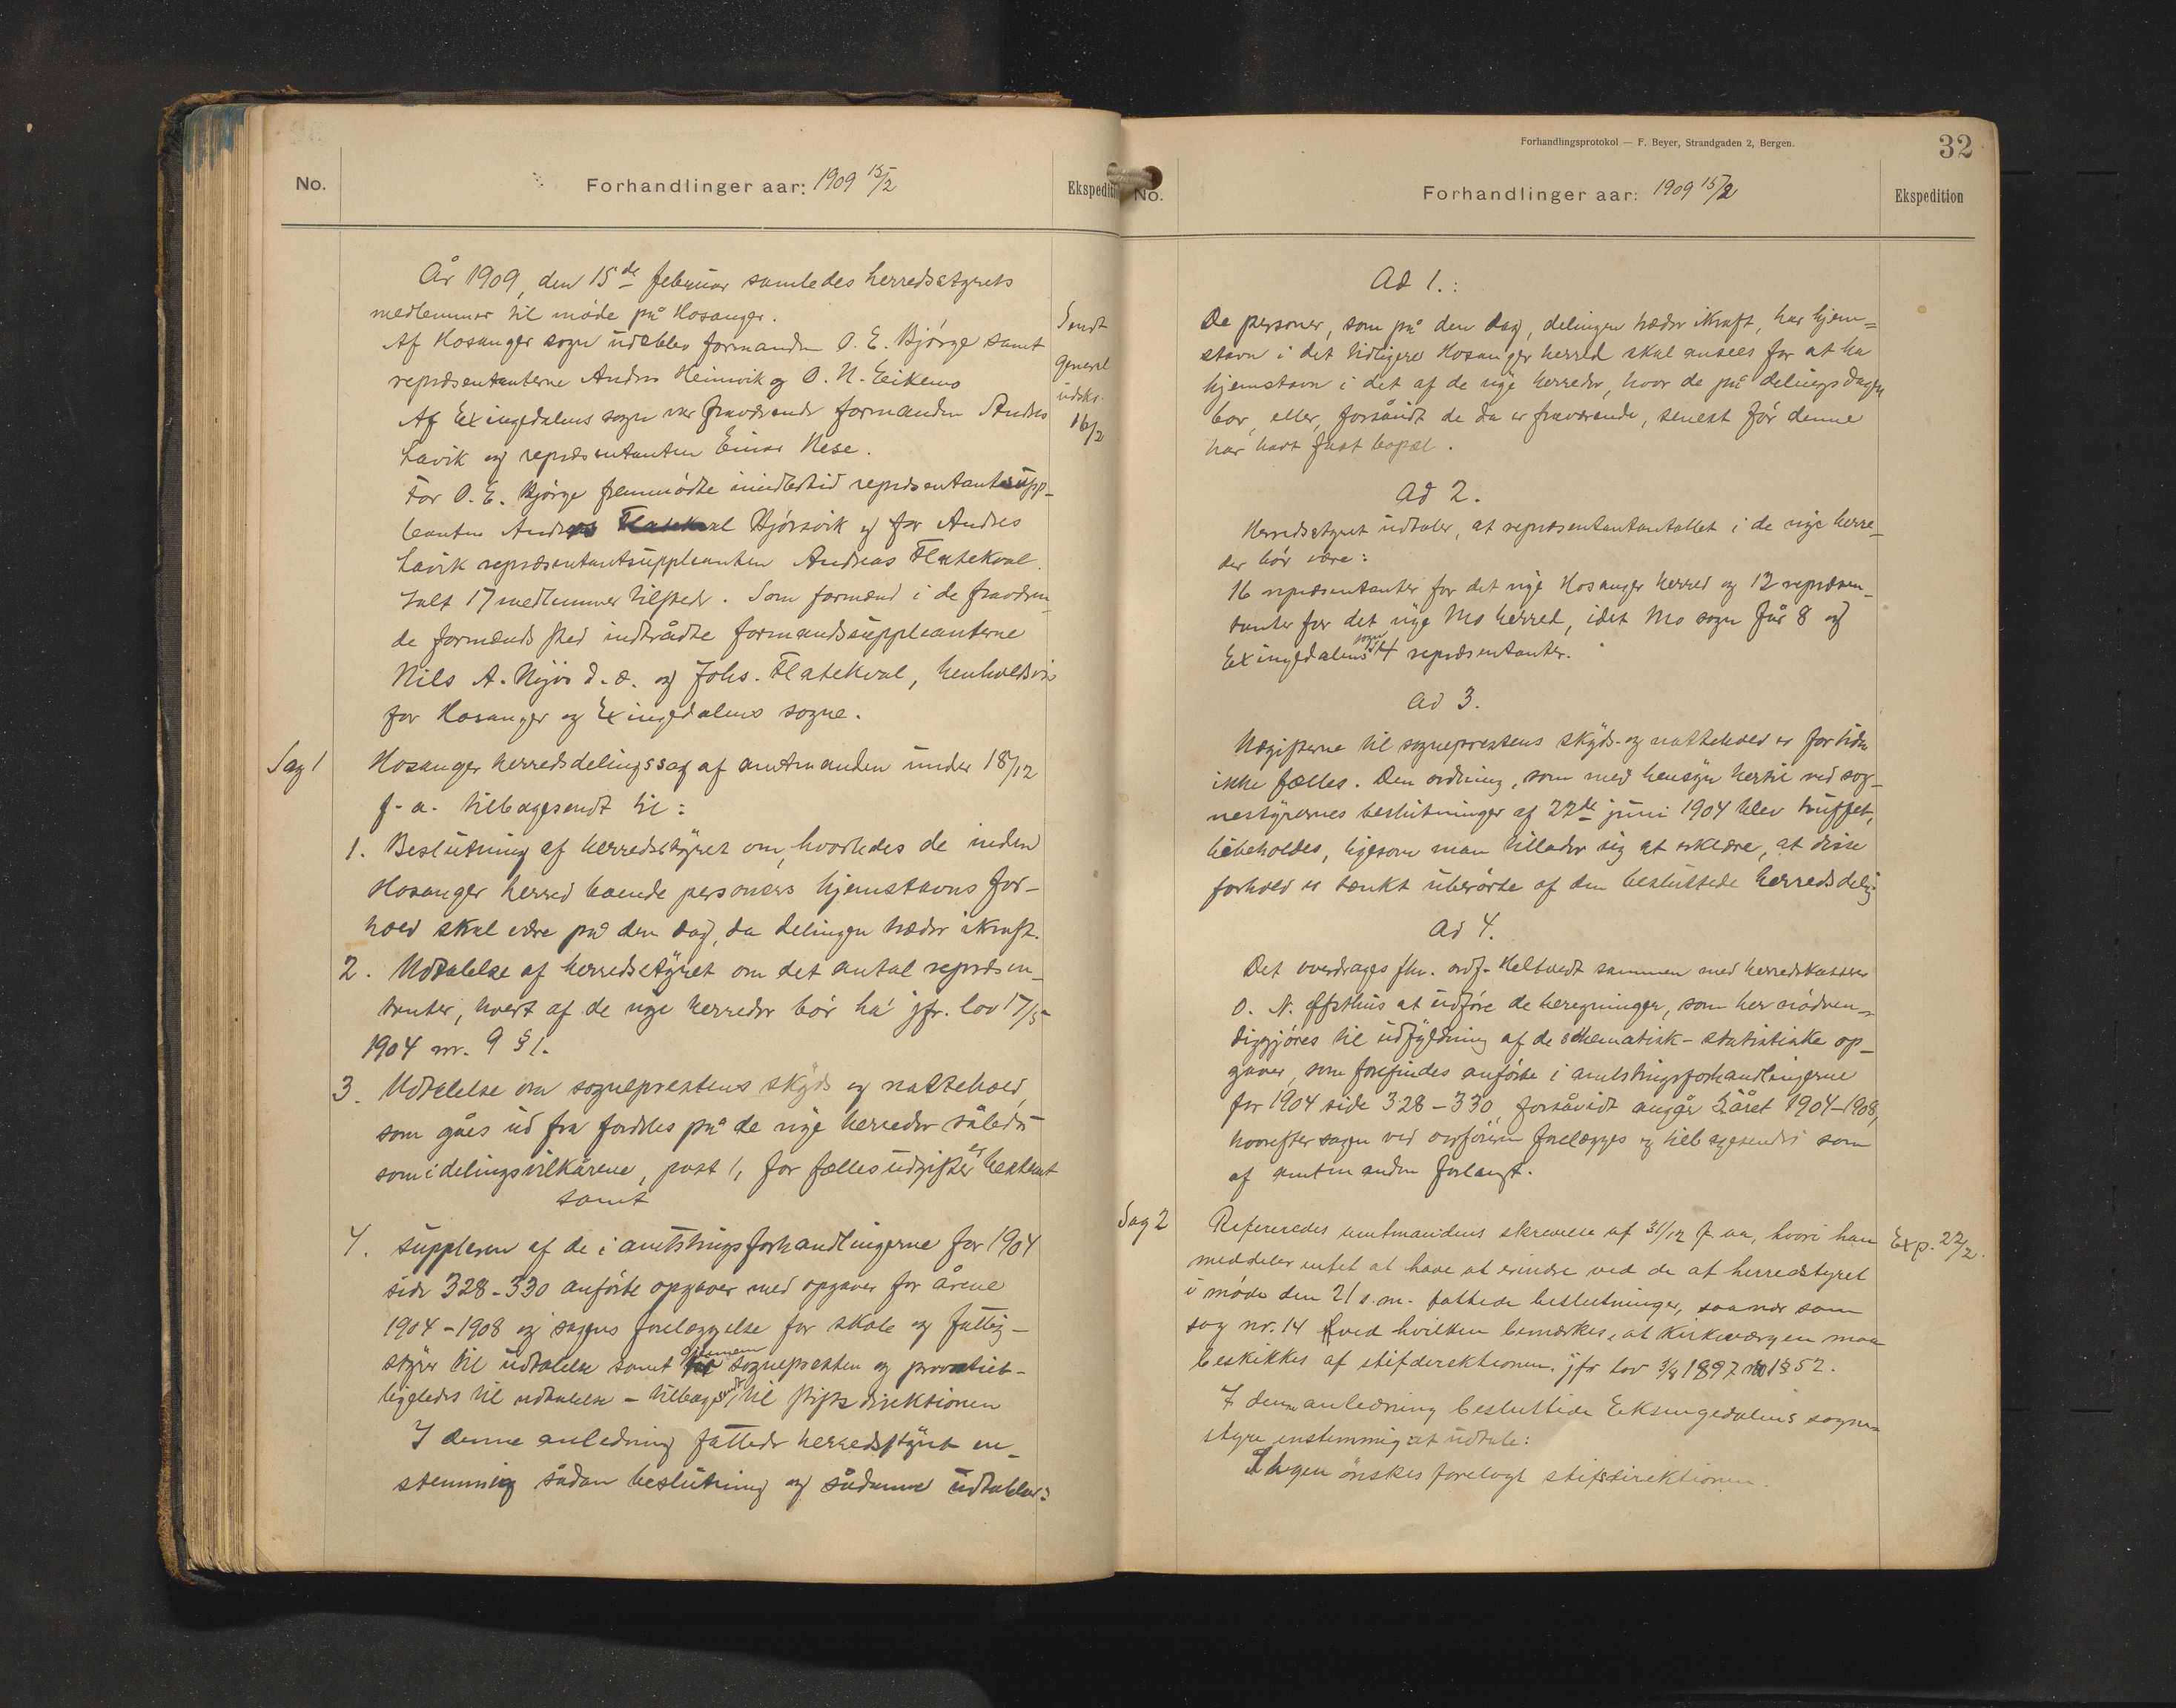 No.
Forhandlinger aar: 1909 15/2
Ekspediti
År 1909, den 15de februar samledes herredsstyrets
medlemmer til møde på Hosanger.
Af Hosanger sogn udeblev formanden O. E. Bjørge samt
repræsentanterne Andres Heimvik og O. N. Eikemo
Af Exingedalens sogn var fraværende formanden Andres
Lavik og repræsentanten Einar Nese.
For O. E. Bjørge fremmødte imidlertid repræsentantsupp-
leanten Andreas Hjørsvik og for Andres
Lavik repræsentantsuppleanten Andreas Flatekval.
Ialt 17 medlemmer tilstede. Som formænd i de fraværen-
de formænds sted indtrådte formandssuppleanterne
Nils A. Mjøs d. æ. og Johs. Flatekval, henholdsvis
for Hosanger og Exingedalens sogne.
Sendt
general
udskr.
16/2
Sag 1
Hosanger herredsdelingssag af amtmanden under 18/12
f. a. tilbagesendt til:
1. Beslutning af herredsstyret om, hvorledes de inden
Hosanger herred boende personers hjemstavns for-
hold skal være på den dag, da delingen træder ikraft.
2. Udtalelse af herredsstyret om det antal repræsen-
tanter, hvert af de nye herreder bør ha jfr. lov 17/5
1904 nr. 9 § 1.
3. Udtalelse om sogneprestens skyds og nattehold,
som gåes ud fra fordeles på de nye herreder således
som i delingsvilkårene, post 1, for fælles udgifter er bestemt
samt
4. suppleren af de i amtstingsforhandlingerne for 1904
side 328-330 anførte opgaver med opgaver for årene
1904-1908 og sagens forelæggelse for skole og fattig-
styrer til udtalelse samt gjennem sognepresten og provstiet -
ligeledes til udtalelse - tilbagesendt til stiftsdirektionen
I denne anledning fattede herredsstyret en-
stemmig sådan beslutning og sådanne udtalelser:
Forhandlingsprotokol — F. Beyer, Strandgaden 2, Bergen.
32
No.
Forhandlinger aar: 1909 15/2
Ekspedition
Ad 1.:
De personer, som på den dag, delingen træder ikraft, har hjem=
stavn i det tidligere Hosanger herred skal ansees for at ha
hjemstavn i det af de nye herreder, hvor de på delingsdagen
bor, eller, forsåvidt de da er fraværende, senest før denne
har havt fast bopæl.
Ad 2.
Herredsstyret udtaler, at repræsentantantallet i de nye herre-
der bør være:
16 repræsentanter for det nye Hosanger herred og 12 repræsen-
tanter for det nye Mo herred, idet Mo sogn får 8 og
Exingedalens sogn 4 repræsentanter.
Ad 3.
Udgifterne til sogneprestens skyds- og nattehold er for tiden
ikke fælles. Den ordning, som med hensyn hertil ved sog-
nestyrernes beslutninger af 22de juni 1904 blev truffet,
bibeholdes, ligesom man tillader sig at erklære, at disse
forhold er tænkt uberørte af den besluttede herredsdeling
Ad 4.
Det overdrages fhv. ordf. Heltvedt sammen med herredskasserer
O. N. Åsthus at udføre de beregninger, som her nødven-
diggjøres til udfyldning af de skematisk-statistiske op-
gaver, som forefindes anførte i amtstingsforhandlingerne
for 1904 side 328-330, forsåvidt angår 5året 1904-1908,
hvorefter sagen ved ordføreren forelægges og tilbagesendes som
af amtmanden forlangt.
Sag 2
Refereredes amtmandens skrivelse af 31/12 f. aa, hvori han
meddeler intet at have at erindre ved de af herredstyret
i møde den 21 s. m. fattede beslutninger, saanær som
sag nr. 14 ved hvilken bemærkes, at kirkeværgen maa
beskikkes af stiftdirektionen. jfr lov 3/8 1897 no 1 § 52.
I denne anledning besluttede Eksingedalens sogne-
styre enstemmig at udtale:
Sagen ønskes forelagt stiftsdirektionen.
Exp. 22/2.